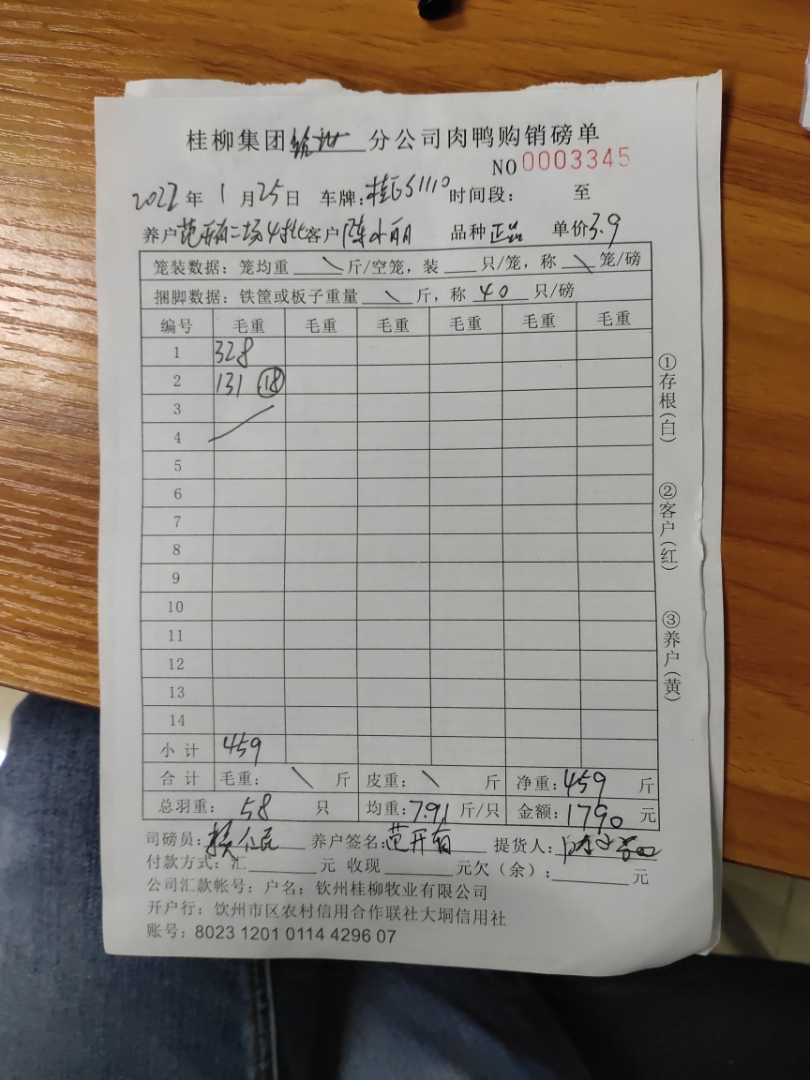 桂柳集团钦州分公司肉鸭购销磅单
NO 0003345
2022年1月25日 车牌:桂G51110 时间段: 至
养户范开有二场4批客户陈小丽 品种正品 单价3.9
笼装数据:笼均重\斤/空笼,装___只/笼,称\笼/磅
捆脚数据:铁筐或板子重量\斤,称40只/磅
编号 毛重 毛重 毛重 毛重 毛重 毛重
1 328
2 131 ⑱
3
4
5
6
7
8
9
10
11
12
13
14
小计 459
合计 毛重: \ 斤 皮重: \ 斤 净重:459 斤
总羽重: 58 只 均重:7.91斤/只 金额:1790元
司磅员: 公民 养户签名:范开有 提货人:
付款方式:汇______元 收现______元欠(余):______元
公司汇款帐号:户名:钦州桂柳牧业有限公司
开户行:饮州市区农村信用合作联社大垌信用社
账号:8023 1201 0114 4296 07
①存根(白)
②客户(红)
③养户(黄)